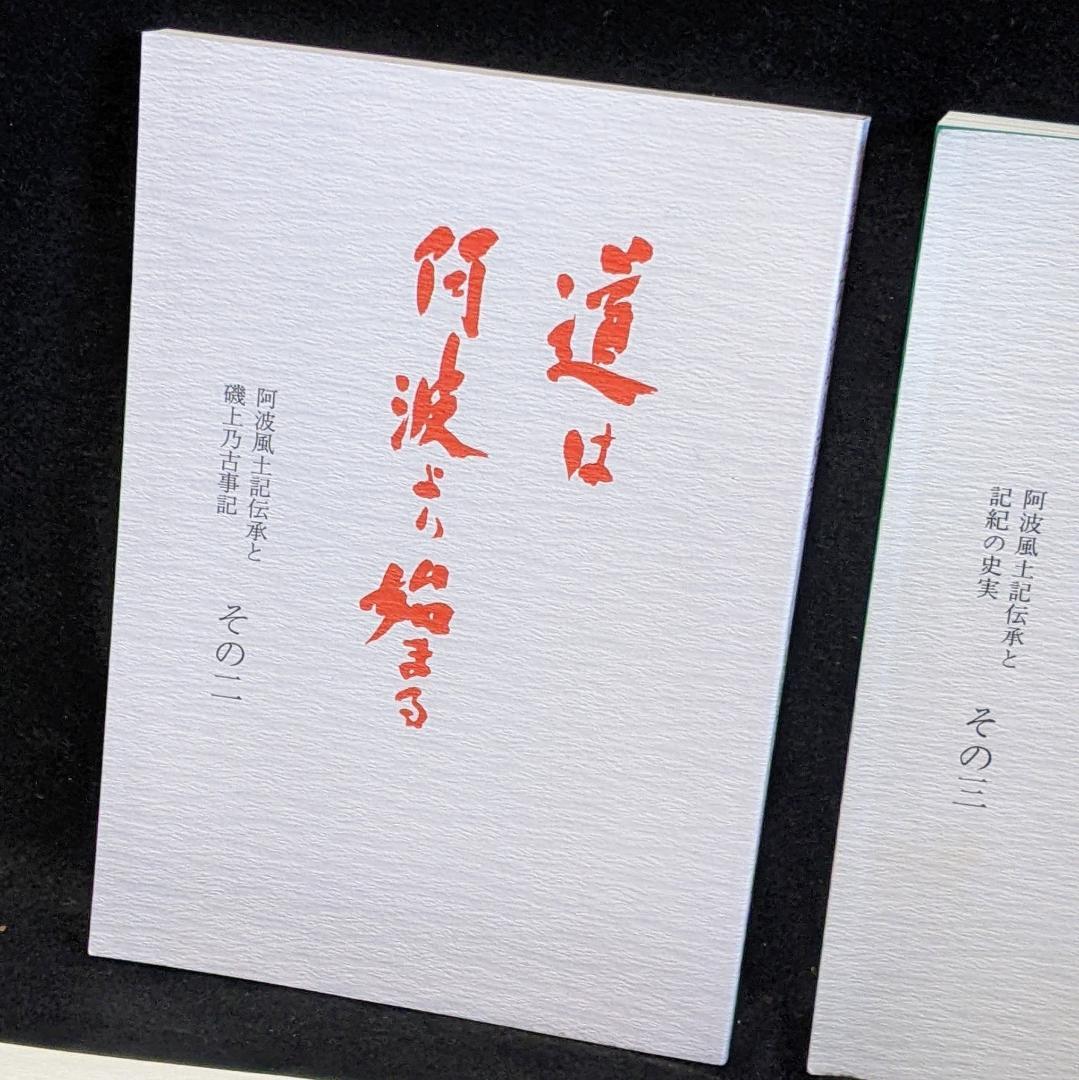 道は
阿波より始まる
阿波風土記伝承と
磯上乃古事記
その二
阿波風土記伝承と
記紀の史実
その三